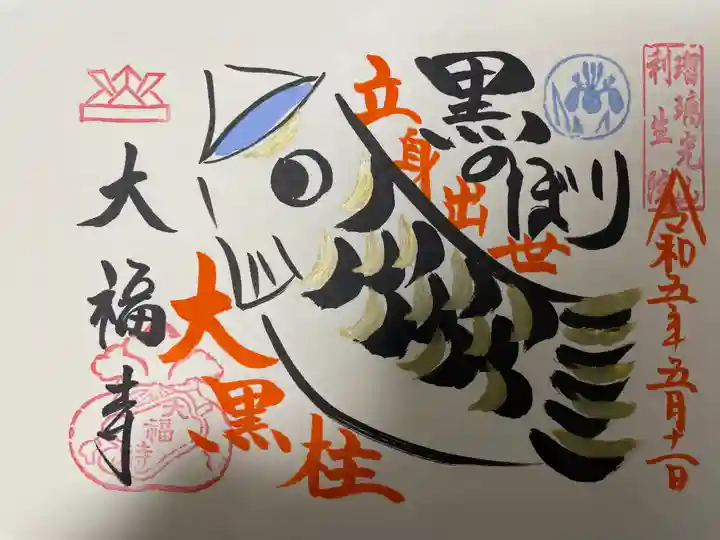 瑠璃完
利生院
令和五年五月十一日
黒のぼり
立身出世
大黒柱
大福寺
大福寺